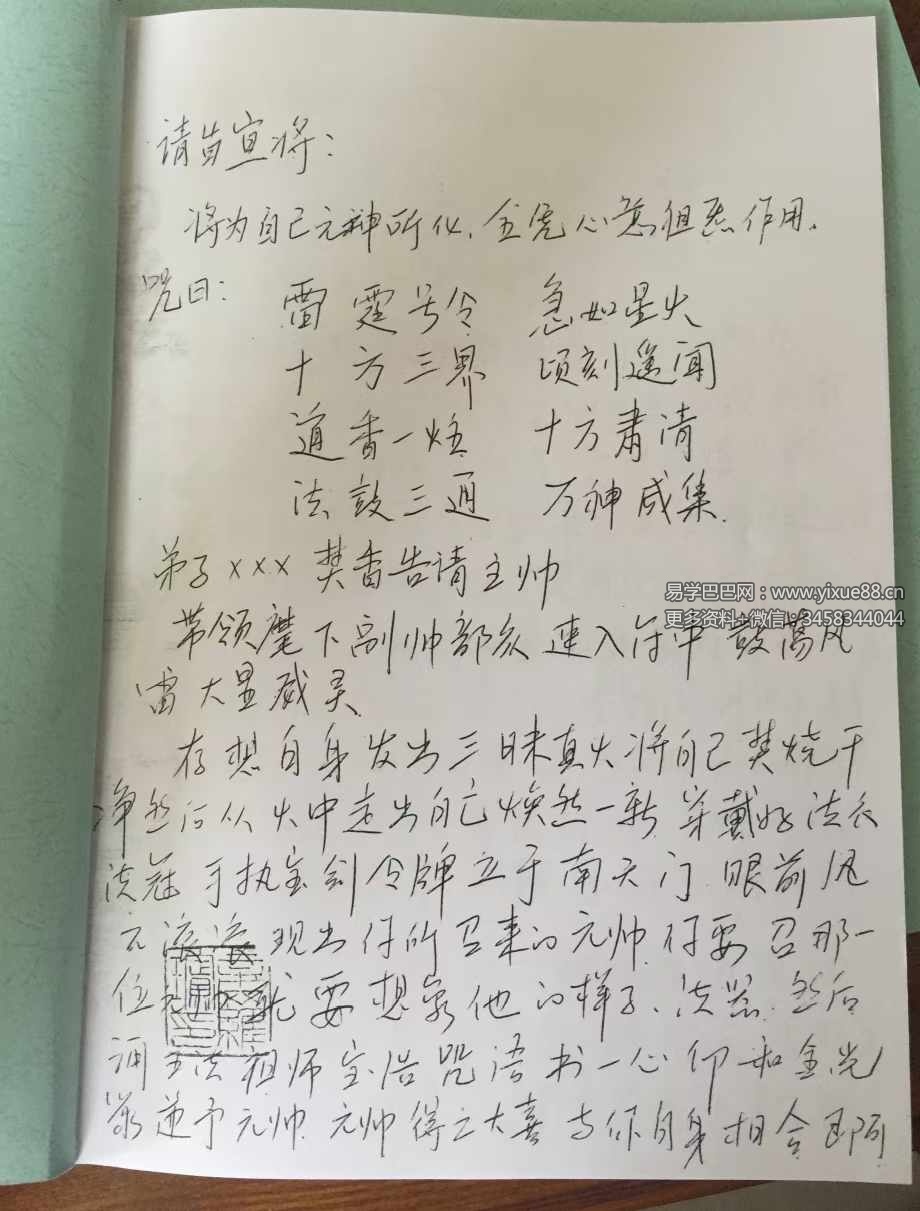 请旨宣将：
将为自己元神所化、全凭心意 作用.
咒曰： 雷霆号令 急如星火
十方三界 顷刻遥闻
道香一炷 十方肃清
法鼓三通 万神咸集.
弟子xxx 焚香告请主帅
易学巴巴网：www.yixue88.cn
更多资料+微信：3458344044
带领麾下副帅部众 速入符中 鼓荡风
雷大显威灵
存想自身发出三昧真火将自己焚烧干
净然后从火中走出自己焕然一新 穿戴好法衣
法冠 手执宝剑令牌立于南天门 眼前风
云滚滚 现出你所召来的元帅 你要召那一
位元帅就要想象他的样子、法器. 然后
诵主法祖师宝诰咒语书一心印和金光
篆递予元帅. 元帅得之大喜 与你自身相合即可